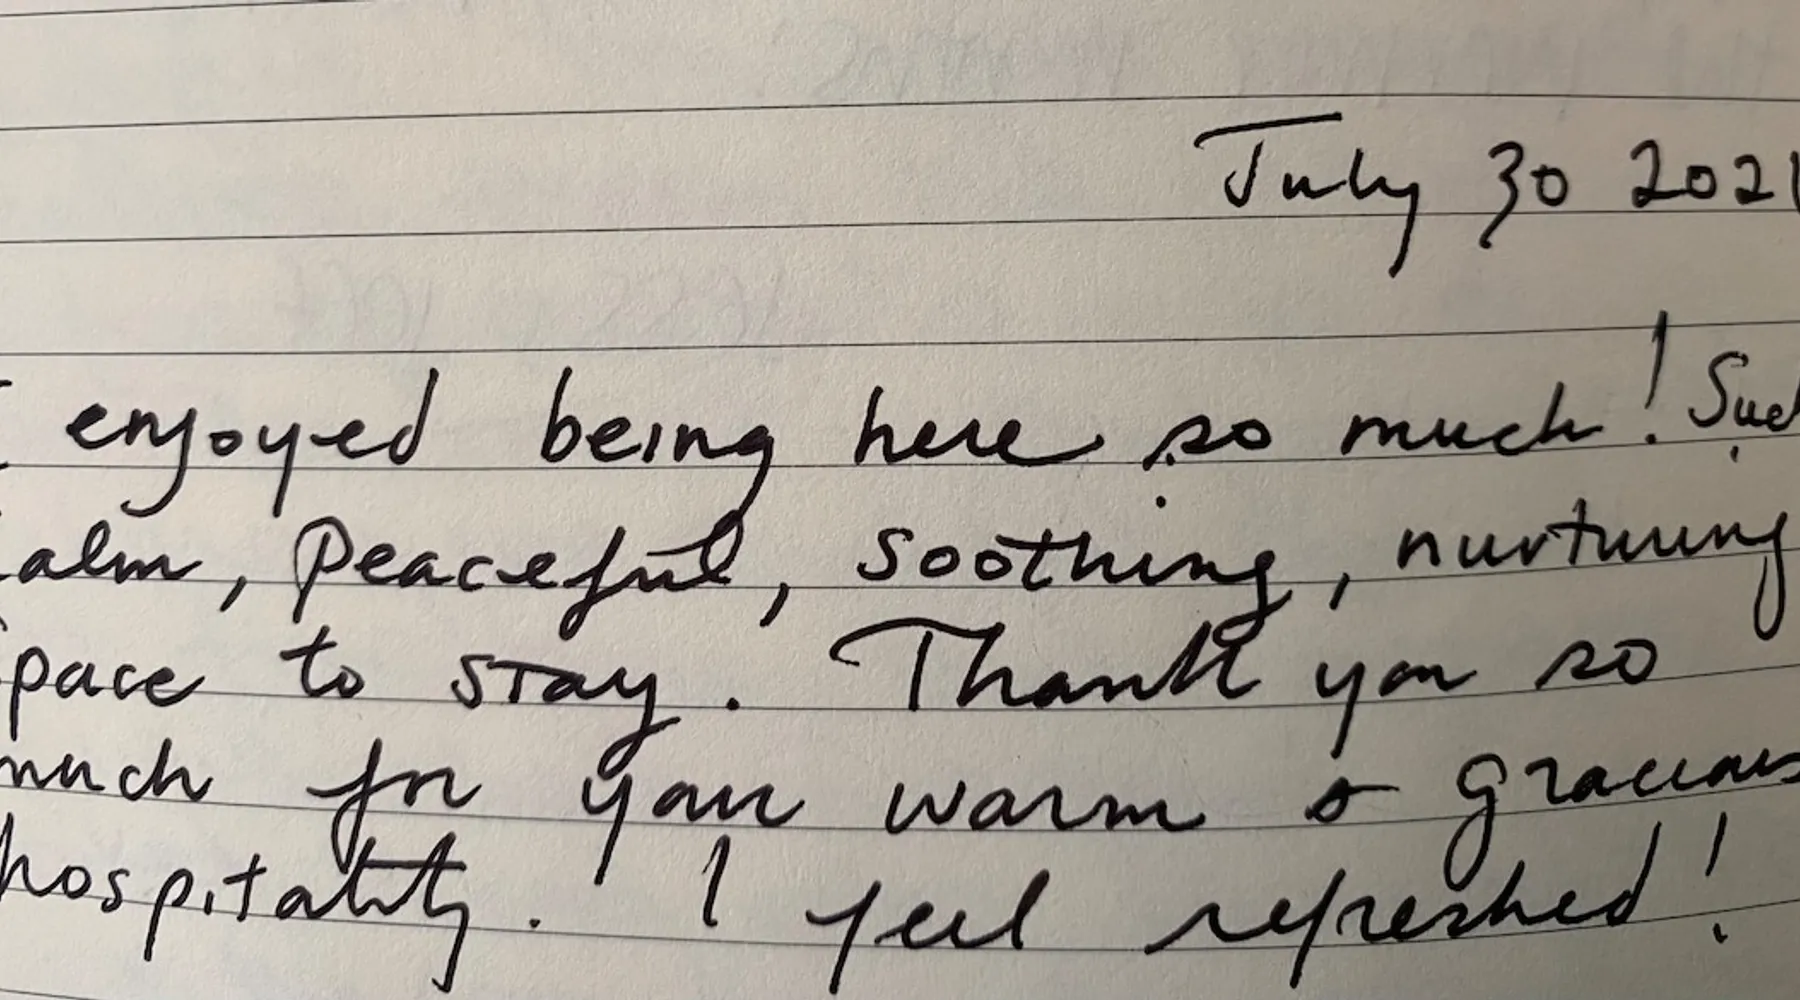 July 30 2021
I enjoyed being here so much! Such
calm, peaceful, soothing, nurturing
space to stay. Thank you so
much for your warm & gracious
hospitality. I feel refreshed!